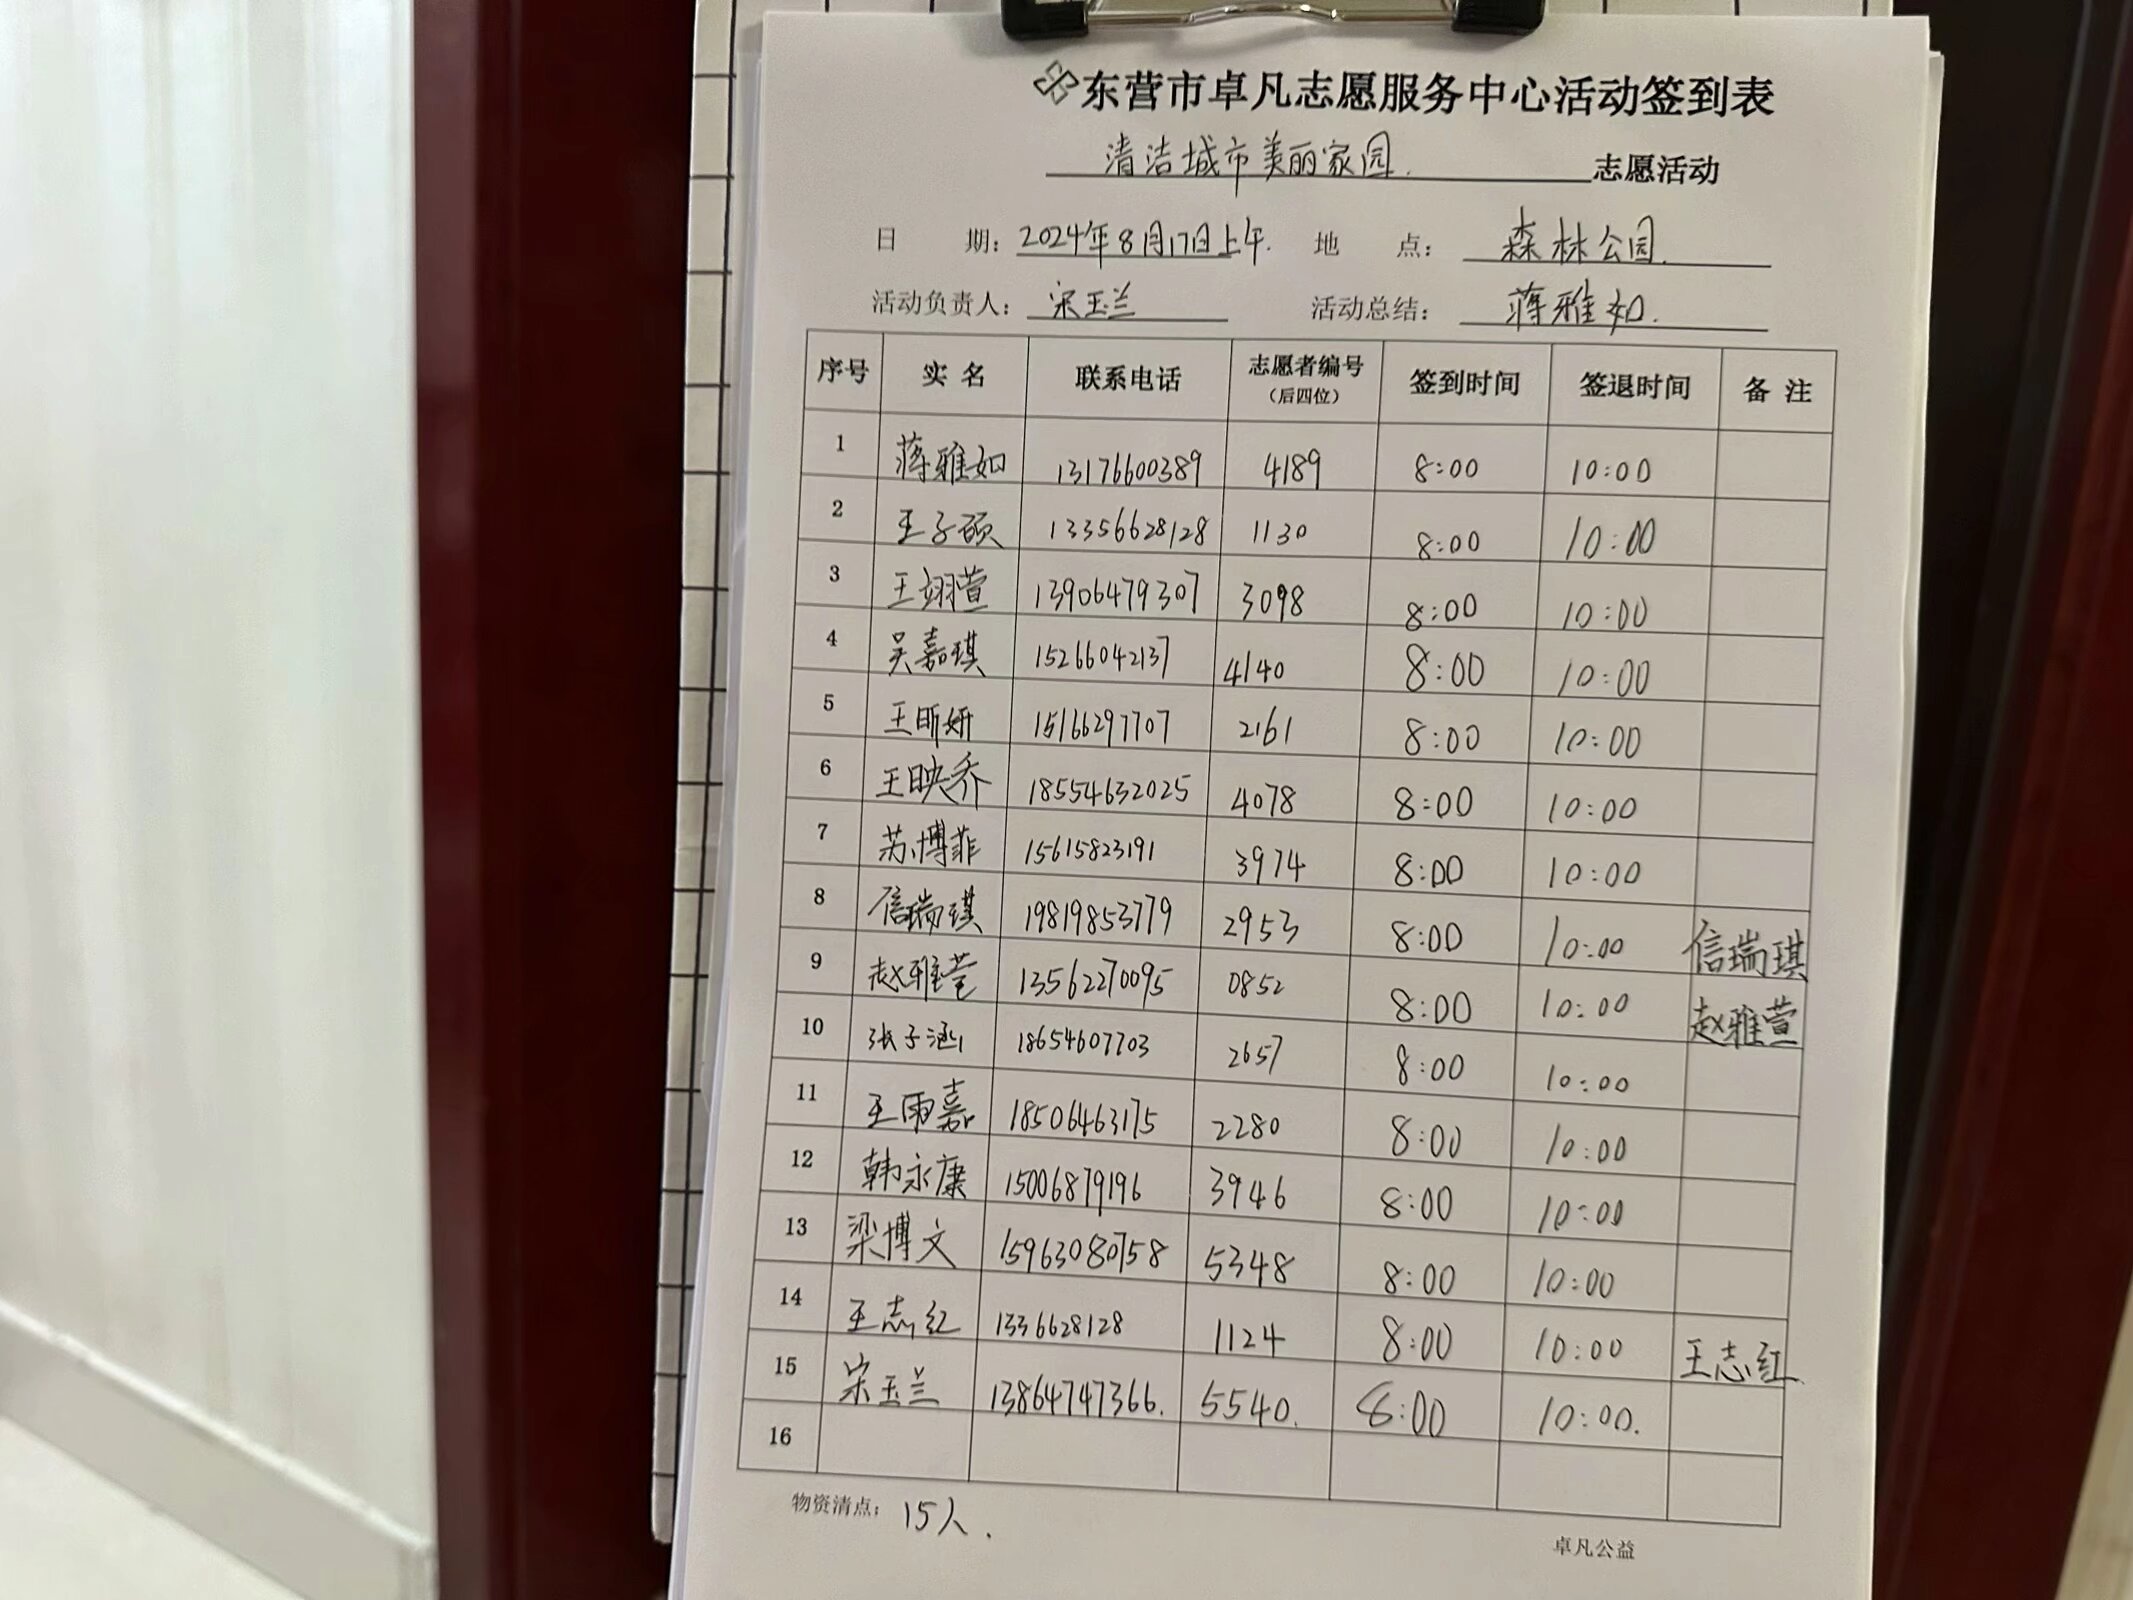 东营市卓凡志愿服务中心活动签到表
清洁城市美丽家园. 志愿活动
日 期: 2024年8月17日上午. 地 点: 森林公园.
活动负责人: 宋玉兰 活动总结: 蒋雅如.
序号 实名 联系电话 志愿者编号 (后四位) 签到时间 签退时间 备注
1 蒋雅如 13176600389 4189 8:00 10:00
2 王子硕 13356628128 1130 8:00 10:00
3 王翊萱 13906479307 3098 8:00 10:00
4 吴嘉琪 15266042137 4140 8:00 10:00
5 王昕妍 15166297707 2161 8:00 10:00
6 王映乔 18554632025 4078 8:00 10:00
7 苏博菲 15615823191 3974 8:00 10:00
8 信瑞琪 19819853779 2953 8:00 10:00 信瑞琪
9 赵雅萱 13562270095 0852 8:00 10:00 赵雅萱
10 张子涵 18654607703 2657 8:00 10:00
11 王雨嘉 18506463175 2280 8:00 10:00
12 韩永康 15006879196 3946 8:00 10:00
13 梁博文 15963080758 5348 8:00 10:00
14 王志红 1336628128 1124 8:00 10:00 王志红
15 宋玉兰 13864747366. 5540. 8:00 10:00.
16
物资清点: 15人.
卓凡公益